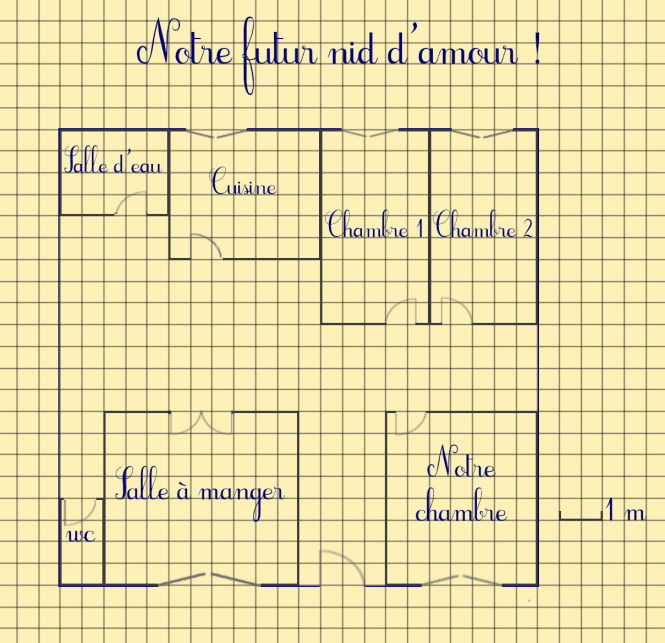 Notre futur nid d'amour !
Salle d'eau
Cuisine
Chambre 1
Chambre 2
Notre
chambre
Salle à manger
1 m
wc